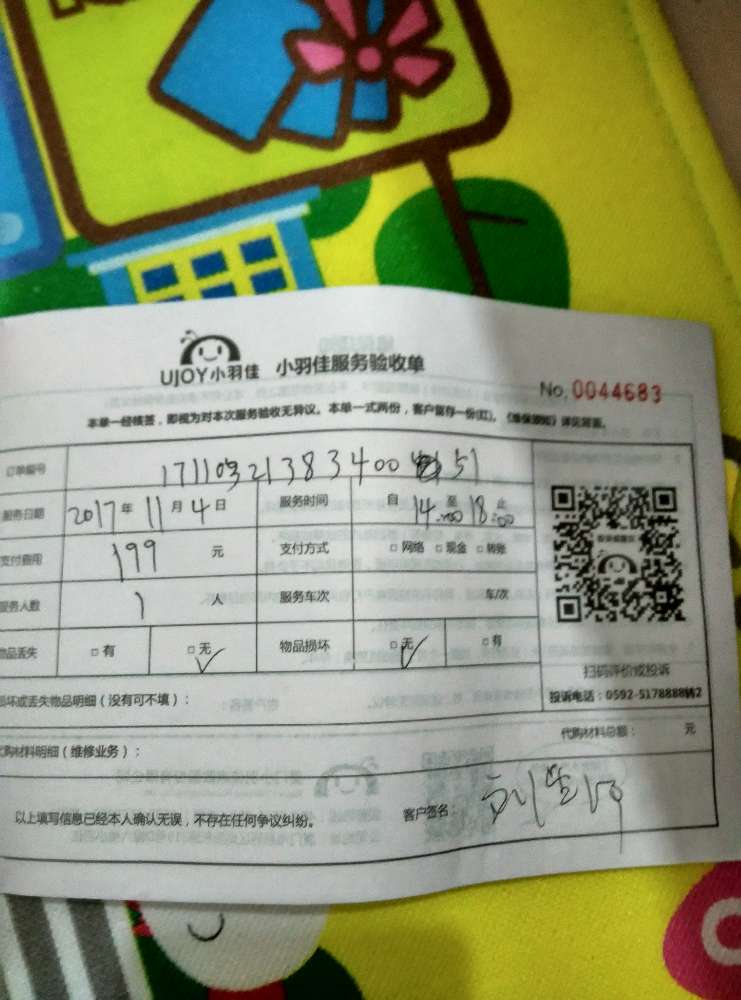 UJOY小羽佳 小羽佳服务验收单
No. 0044683
本单一经核签,即视为对本次服务验收无异议。本单一式两份,客户留存一份(红)。《维保须知》详见背面。
订单编号
服务日期 2017年 11月 4日 服务时间 自 14:00 至 18:00 止
支付费用 199 元 支付方式 □网络 □现金 □转账
服务人数 1 人 服务车次 车/次
物品丢失 □有 □无 ✓ 物品损坏 □无 ✓ □有
扫码评价或投诉
投诉电话:0592-5178888转2
损坏或丢失物品明细(没有可不填):
代购材料明细(维修业务): 代购材料总额: 元
以上填写信息已经本人确认无误,不存在任何争议纠纷。 客户签名: